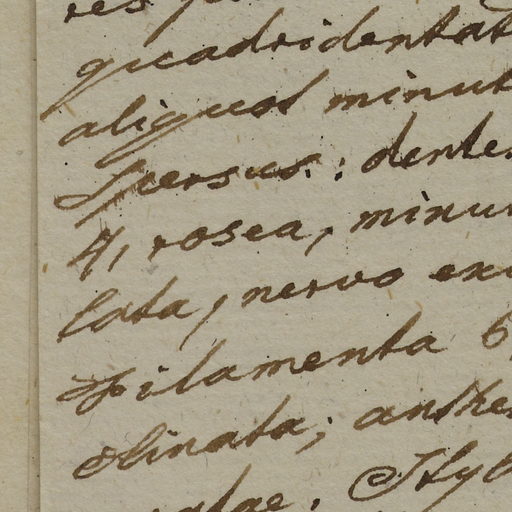 res
quadridentat
aliquot minut
spersus: dente
4, rosea, minu
lata, nervo ex
Filamenta 6
clinata; anthe
atae. Styl